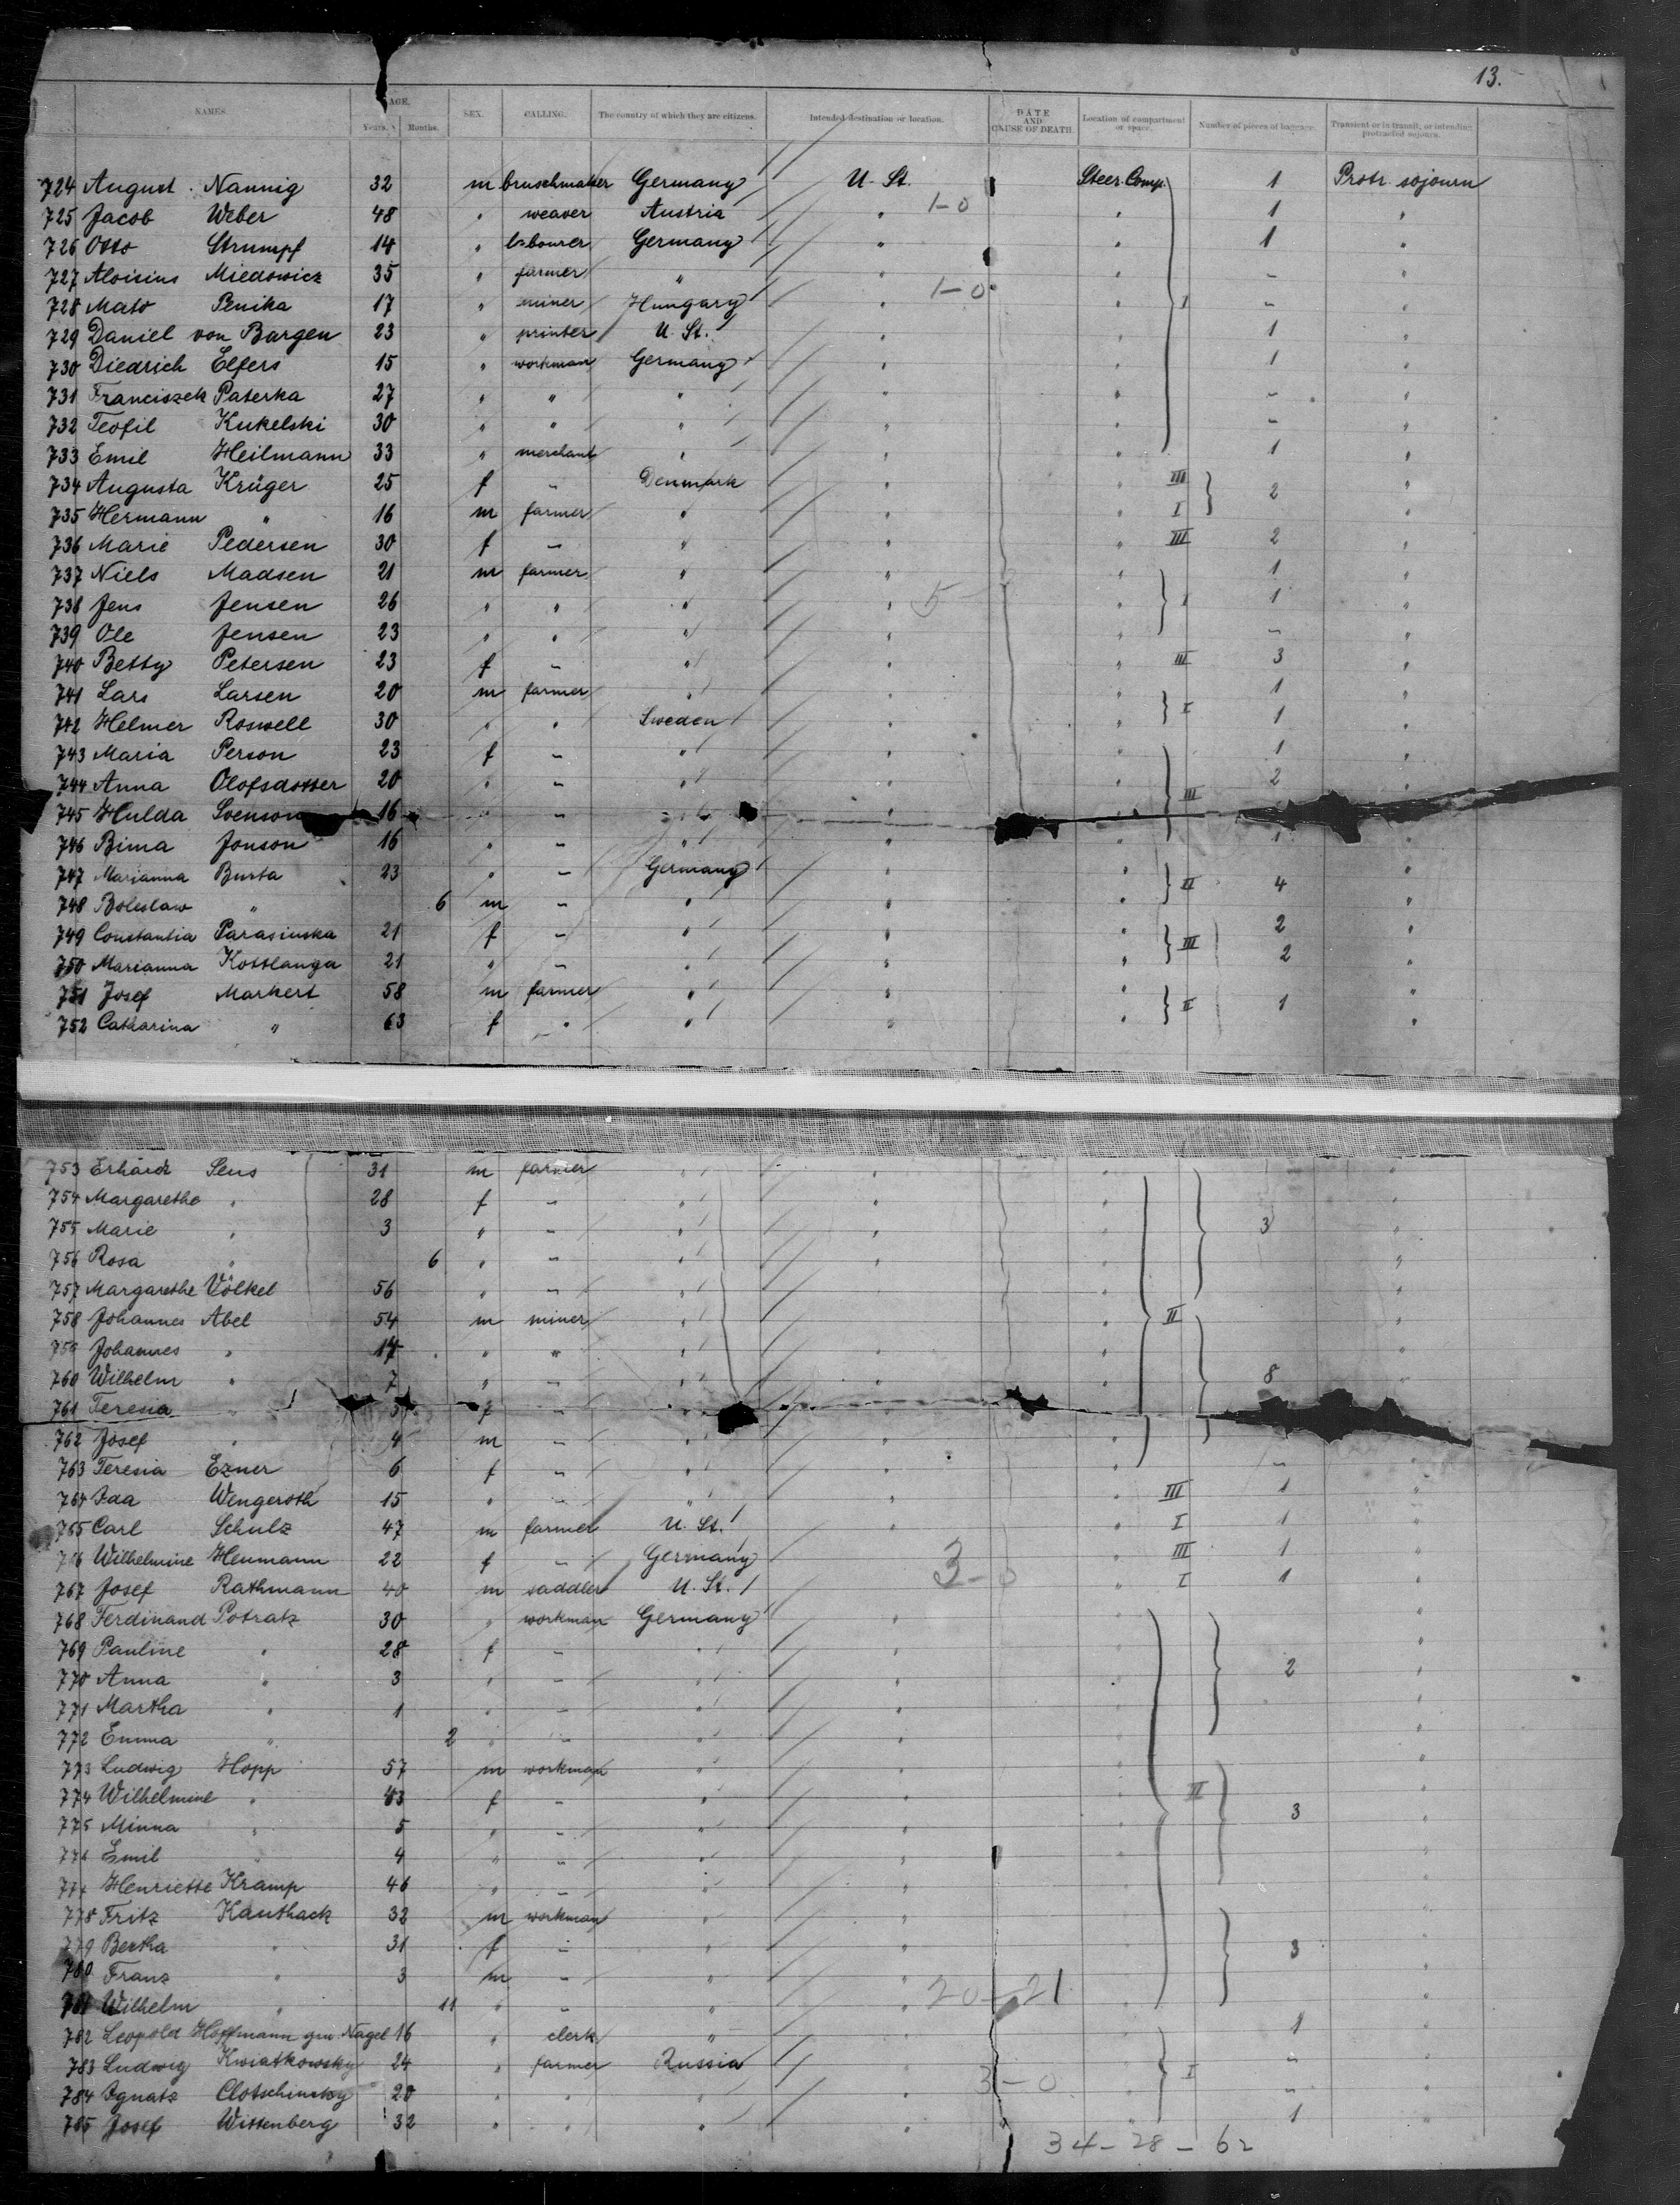 13.
NAMES. AGE. SEX. CALLING. The country of which they are citizens. Intended destination or location. DATE AND CAUSE OF DEATH. Location of compartment or space. Number of pieces of baggage. Transient or in transit, or intending protracted sojourn.
Years. Months.
724 August Nannig 32 m bruschmaker Germany U. St. Steer. Comp. 1 Protr. sojourn
725 Jacob Weber 48 " weaver Austria " 1-0 " 1 "
726 Otto Strumpf 14 " labourer Germany " " 1 "
727 Aloisius Miedowicz 35 " farmer " " " - "
728 Mato Penika 17 " miner Hungary " 1-0 " I - "
729 Daniel von Bargen 23 " printer U. St. " " 1 "
730 Diedrich Elfers 15 " workman Germany " " 1 "
731 Franciszek Paterka 27 " " " " " - "
732 Teofil Kukelski 30 " " " " " - "
733 Emil Heilmann 33 " merchant " " " 1 "
734 Augusta Krüger 25 f - Denmark " " III 2 "
735 Hermann " 16 m farmer " " " I "
736 Marie Pedersen 30 f - " " " III 2 "
737 Niels Madsen 21 m farmer " " " 1 "
738 Jens Jensen 26 " " " " 5 " I 1 "
739 Ole Jensen 23 " " " " " - "
740 Betty Petersen 23 f - " " " III 3 "
741 Lars Larsen 20 m farmer " " " 1 "
742 Helmer Roswell 30 " " Sweden " " I 1 "
743 Maria Person 23 f - " " " 1 "
744 Anna Olofsdotter 20 " - " " " III 2 "
745 Hulda Svenson 16 " - " "
746 Bima Jonson 16 " - " " " 1 "
747 Marianna Burta 23 " - Germany " " II 4 "
748 Boleslaw " 6 m - " " " "
749 Constantia Parasinska 21 f - " " " III 2 "
750 Marianna Kosslanga 21 " - " " " 2 "
751 Josef Markert 58 m farmer " " " II 1 "
752 Catharina " 63 f " " " " "
753 Erhardt Sens 31 m farmer " " " "
754 Margarethe " 28 f - " " " "
755 Marie " 3 " - " " " 3 "
756 Rosa " 6 " - " " " "
757 Margarethe Völkel 56 " - " " "
758 Johannes Abel 54 m miner " " II "
759 Johannes " 17 " " " " " "
760 Wilhelm " 7 " - " " " 8 "
761 Teresia " 5 f - " "
762 Josef " 4 m - " " "
763 Teresia Ezner 6 f - " " " - "
764 Ida Wengeroth 15 " - " " " III 1 "
765 Carl Schulz 47 m farmer U. St. " " I 1 "
766 Wilhelmine Heumann 22 f - Germany 3-0 " III 1 "
767 Josef Rathmann 40 m saddler U. St. " I 1 "
768 Ferdinand Potratz 30 " workman Germany " "
769 Pauline " 28 f - " " "
770 Anna " 3 " - " " 2 "
771 Martha " 1 " - " " "
772 Emma " 2 " - " " "
773 Ludwig Hopp 57 m workman " " "
774 Wilhelmine " 43 f - " " II "
775 Minna " 5 " - " " 3 "
776 Emil " 4 " - " " "
777 Henriette Kramp 46 " - " " "
778 Fritz Kauthack 32 m workman " " "
779 Bertha " 31 f - " " 3 "
780 Franz " 3 m - " " "
781 Wilhelm " 11 " - " " 20-21 "
782 Leopold Hoffmann gen. Nagel 16 " clerk " 1 "
783 Ludwig Kwiatkowsky 24 " farmer Russia " I - "
784 Ignatz Clotschinsky 20 " " " " 3-0 - "
785 Josef Wittenberg 32 " " " " 1 "
34-28-62